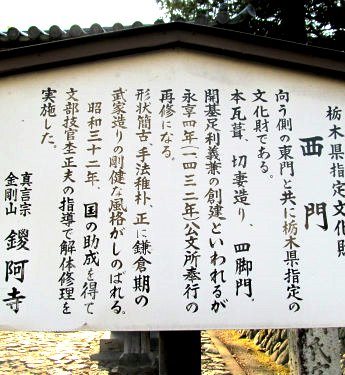 栃木県指定文化財
西門
向う側の東門と共に栃木県指定の
文化財である。
本瓦葺、切妻造り、四脚門、
開基足利義兼の創建といわれるが
永享四年(一四三二年)公文所奉行の
再修になる。
形状簡古、手法稚朴、正に鎌倉期の
武家造りの剛健な風格がしのばれる。
昭和三十二年、国の助成を得て
文部技官杢正夫の指導で解体修理を
実施した。
真言宗
金剛山 鑁阿寺